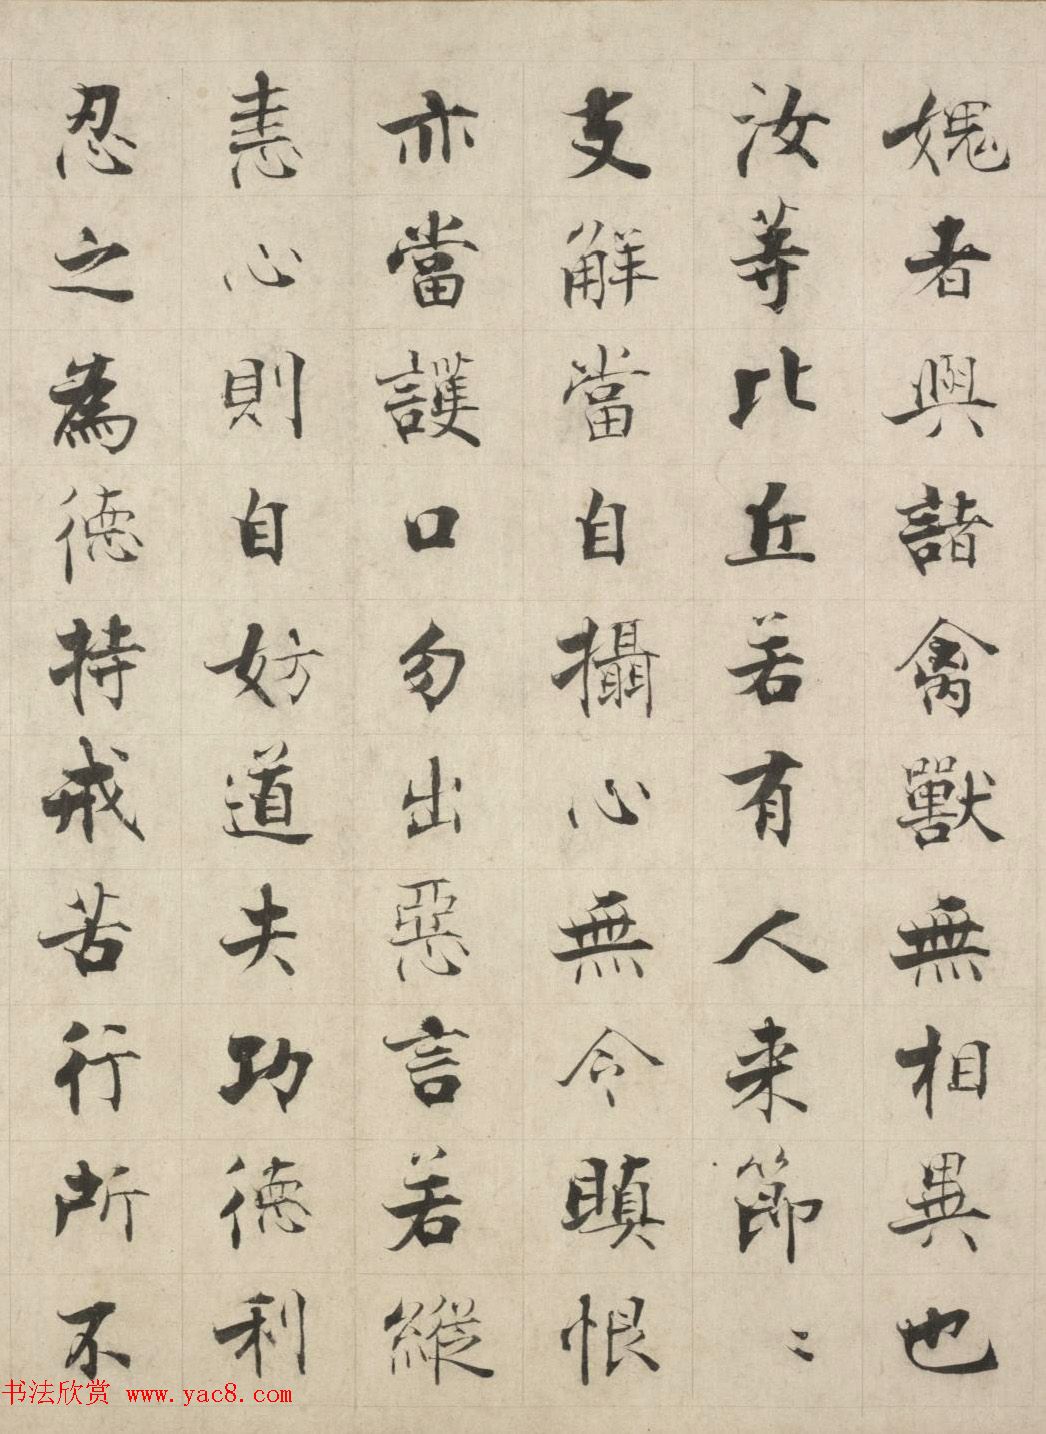 媿者與諸禽獸無相異也
汝等比丘若有人来節〻
支解當自攝心無令瞋恨
亦當護口勿出惡言若縱
恚心則自妨道夫功德利
忍之為德持戒苦行所不
书法欣赏 www.yac8.com